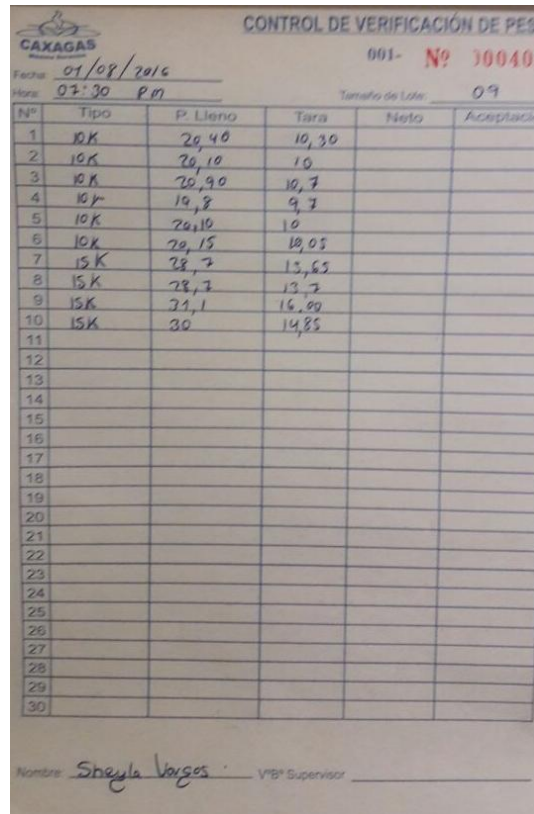 CAXAGAS
CONTROL DE VERIFICACIÓN DE PES
001- Nº 00040
Fecha: 01/08/2016
Hora: 07:30 Pm
Tamaño de Lote: 09
Nº Tipo P. Lleno Tara Neto Aceptaci
1 10K 20,40 10,30
2 10K 20,10 10
3 10K 20,90 10,7
4 10K 19,8 9,7
5 10K 20,10 10
6 10K 20,15 10,05
7 15K 28,7 13,65
8 15K 28,7 13,7
9 15K 31,1 16,00
10 15K 30 14,85
11
12
13
14
15
16
17
18
19
20
21
22
23
24
25
26
27
28
29
30
Nombre: Sheyla Vargas. VºBº Supervisor